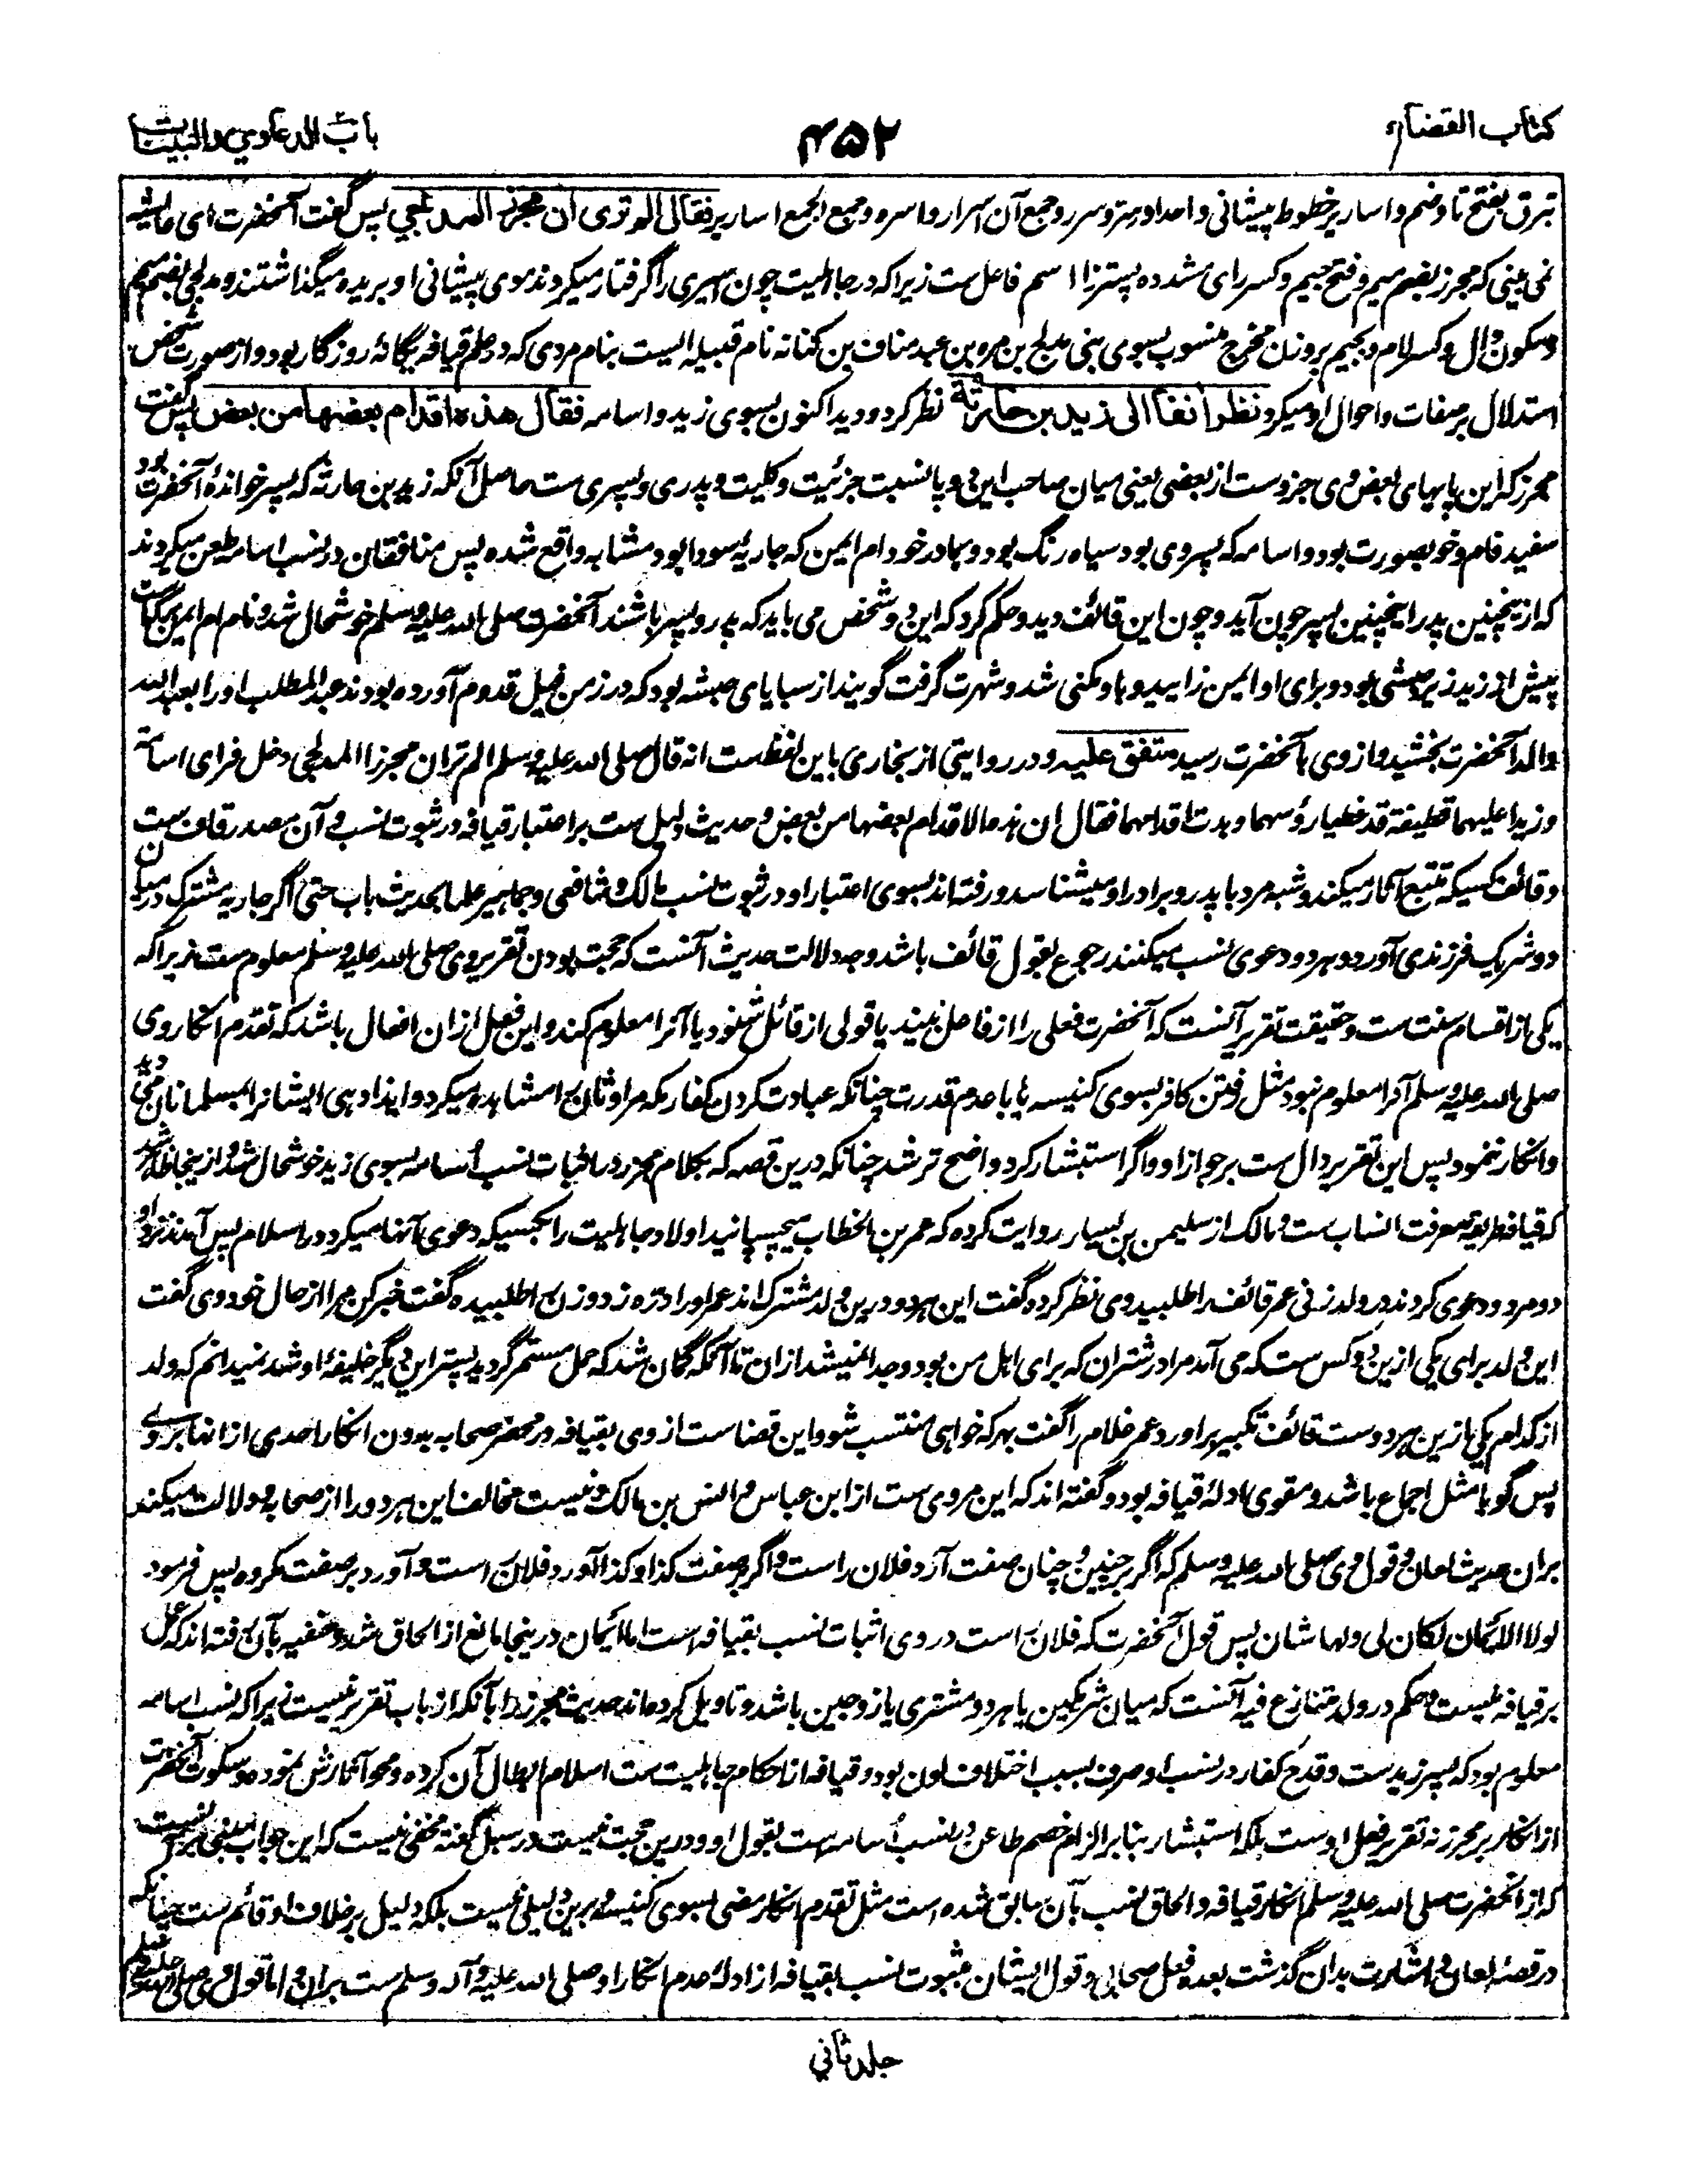 كتاب القضاء
۴۵۲
باب الدعاوي والبينات
تبرق بفتح تا وضم را و اساریر خطوط پیشانی واحد او سر و سرر و جمع آن اسرار و اسره و جمع الجمع اساریر فقال الم تری ان مجزز المدلجي پس گفت آنحضرت ای عایشه
نمی بینی که مجزز بضم میم و فتح جیم و کسر زای مشدده پستر زا اسم فاعل ست زیرا که در جاهلیت چون اسیری را گرفتار میکردند موی پیشانی او بریده میگذاشتند و مدلجی بضم میم
و سکون دال و کسر لام و بجیم بر وزن مخرج منسوب بسوی بنی مدلج بن مره بن عبد مناف بن کنانه نام قبیله ایست بنام مردی که در علم قیافه یگانهٔ روزگار بود و از صورت شخص
استدلال بر صفات و احوال او میکرد نظر انفا الی زید بن حارثة نظر کرد و دید اکنون بسوی زید و اسامه فقال هذه اقدام بعضها من بعض پس گفت
مجزز که این پایهای بعض وی جزوست از بعضی یعنی میان صاحب این دو پا نسبت جزئیت و کلیت و پدری و پسری ست حاصل آنکه زید بن حارثه که پسر خواندهٔ آنحضرت بود
سفید فام و خوبصورت بود و اسامه که پسر وی بود سیاه رنگ بود و بمادر خود ام ایمن که جاریهٔ سودا بود مشابه واقع شده پس منافقان در نسب اسامه طعن میکردند
که از ینچنین پدر اینچنین پسر چون آید و چون این قائف دید و حکم کرد که این دو شخص می باید که پدر و پسر باشند آنحضرت صلی الله علیه و سلم خوشحال شد و نام ام ایمن برکات ست
پیش از زید زیر حبشی بود و برای او ایمن زایید و باو مکنی شد و شهرت گرفت گویند از سبایای حبشه بود که در زمن فیل قدوم آورده بودند عبد المطلب او را بعبد الله
والد آنحضرت بخشید و از وی بآنحضرت رسید متفق علیه و در روایتی از بخاری باین لفظ ست انه قال صلی الله علیه و سلم الم تر ان مجززا المدلجی دخل فرای اسامة
و زیدا علیهما قطیفة قد غطیا رؤسهما و بدت اقدامهما فقال ان هذه الاقدام بعضها من بعض و حدیث دلیل ست بر اعتبار قیافه در ثبوت نسب و آن مصدر قاف ست
و قائف کسیکه تتبع آثار میکند و شبه مرد با پدر و برادر او میشناسد و رفته اند بسوی اعتبار او در ثبوت نسب مالک و شافعی و جماهیر علما بحدیث باب حتی اگر جاریه مشترک در میان
دو شریک فرزندی آورد و هر دو دعوی نسب میکنند رجوع بقول قائف باشد وجه دلالت حدیث آنست که حجت بودن تقریر وی صلی الله علیه و سلم معلوم ست زیرا که
یکی از اقسام سنت ست و حقیقت تقریر آنست که آنحضرت فعلی را از فاعل بیند یا قولی از قائل شنود یا آنرا معلوم کند و این فعل از ان افعال باشد که تقدم انکار وی
صلی الله علیه و سلم آنرا معلوم نبود مثل رفتن کافر بسوی کنیسه یا با عدم قدرت چنانکه عبادت کردن کفار مکه مر اوثان را مشاهده میکرد و ایذا دهی ایشانرا بمسلمانان می دید
و انکار ننمود پس این تقریر دال ست بر جواز او و اگر استبشار کرد واضح تر شد چنانکه درین قصه که بکلام مجزز در اثبات نسب اسامه بسوی زید خوشحال شد و از ینجا ظاهر شد
که قیافه طریقه معرفت انساب ست و مالک از سلیمن بن یسار روایت کرده که عمر بن الخطاب میچسپانید اولاد جاهلیت را بکسیکه دعوی آنها میکرد در اسلام پس آمدند نزد او
دو مرد و دعوی کردند در ولد زنی عمر قائف را طلبید وی نظر کرده گفت این هر دو درین ولد مشترک اند عمر او را دره زد و زن را طلبیده گفت خبر کن مرا از حال خود وی گفت
این ولد برای یکی ازین دو کس ست که می آمد مرا در شتران که برای اهل من بود و جدا نمیشد از ان تا آنکه گمان شد که حمل مستمر گردید پستر این دیگر خلیفهٔ او شد نمیدانم که ولد
از کدام یکی ازین هر دوست قائف تکبیر برآورد و عمر غلام را گفت بهر که خواهی منتسب شو و این قضا ست از وی بقیافه در محضر صحابه بدون انکار احدی از انها بر وی
پس گویا مثل اجماع باشد و مقوی ادلهٔ قیافه بود و گفته اند که این مروی ست از ابن عباس و انس بن مالک و نیست مخالف این هر دو را از صحابه و دلالت میکند
بران حدیث لعان و قول وی صلی الله علیه و سلم که اگر بر چنین و چنان صفت آرد فلان راست و اگر بر صفت کذا و کذا آورد فلان راست و آورد بر صفت مکروه پس فرمود
لولا الایمان لکان لی و لها شان پس قول آنحضرت که فلان راست در وی اثبات نسب بقیافه است اما ایمان درینجا مانع از الحاق شد و حنفیه بآن رفته اند که عمل
بر قیافه نیست و حکم در ولد متنازع فیه آنست که میان شریکین یا هر دو مشتری یا زوجین باشد و تاویل کرده اند حدیث مجزز را بآنکه از باب تقریر نیست زیرا که نسب اسامه
معلوم بود که پسر زید ست و قدح کفار در نسب او صرف بسبب اختلاف لون بود و قیافه از احکام جاهلیت ست اسلام ابطال آن کرده و محو آثارش نموده و سکوت آنحضرت
از انکار بر مجزز نه تقریر فعل اوست بلکه استبشار بنا بر الزام خصم طاعن در نسب اسامه ست بقول او و درین حجت نیست در سبل گفته مخفی نیست که این جواب مبنی بر آنست
که از آنحضرت صلی الله علیه و سلم انکار قیافه و الحاق نسب بآن سابق شده است مثل تقدم انکار مضی بسوی کنیسه و برین دلیلی نیست بلکه دلیل بر خلاف او قائم ست چنانکه
در قصهٔ لعان و اشارت بدان گذشت بعده فعل صحابی و قول ایشان بثبوت نسب بقیافه از ادلهٔ عدم انکار او صلی الله علیه و آله و سلم ست بران و اما قول وی صلی الله علیه و سلم
جلد ثاني